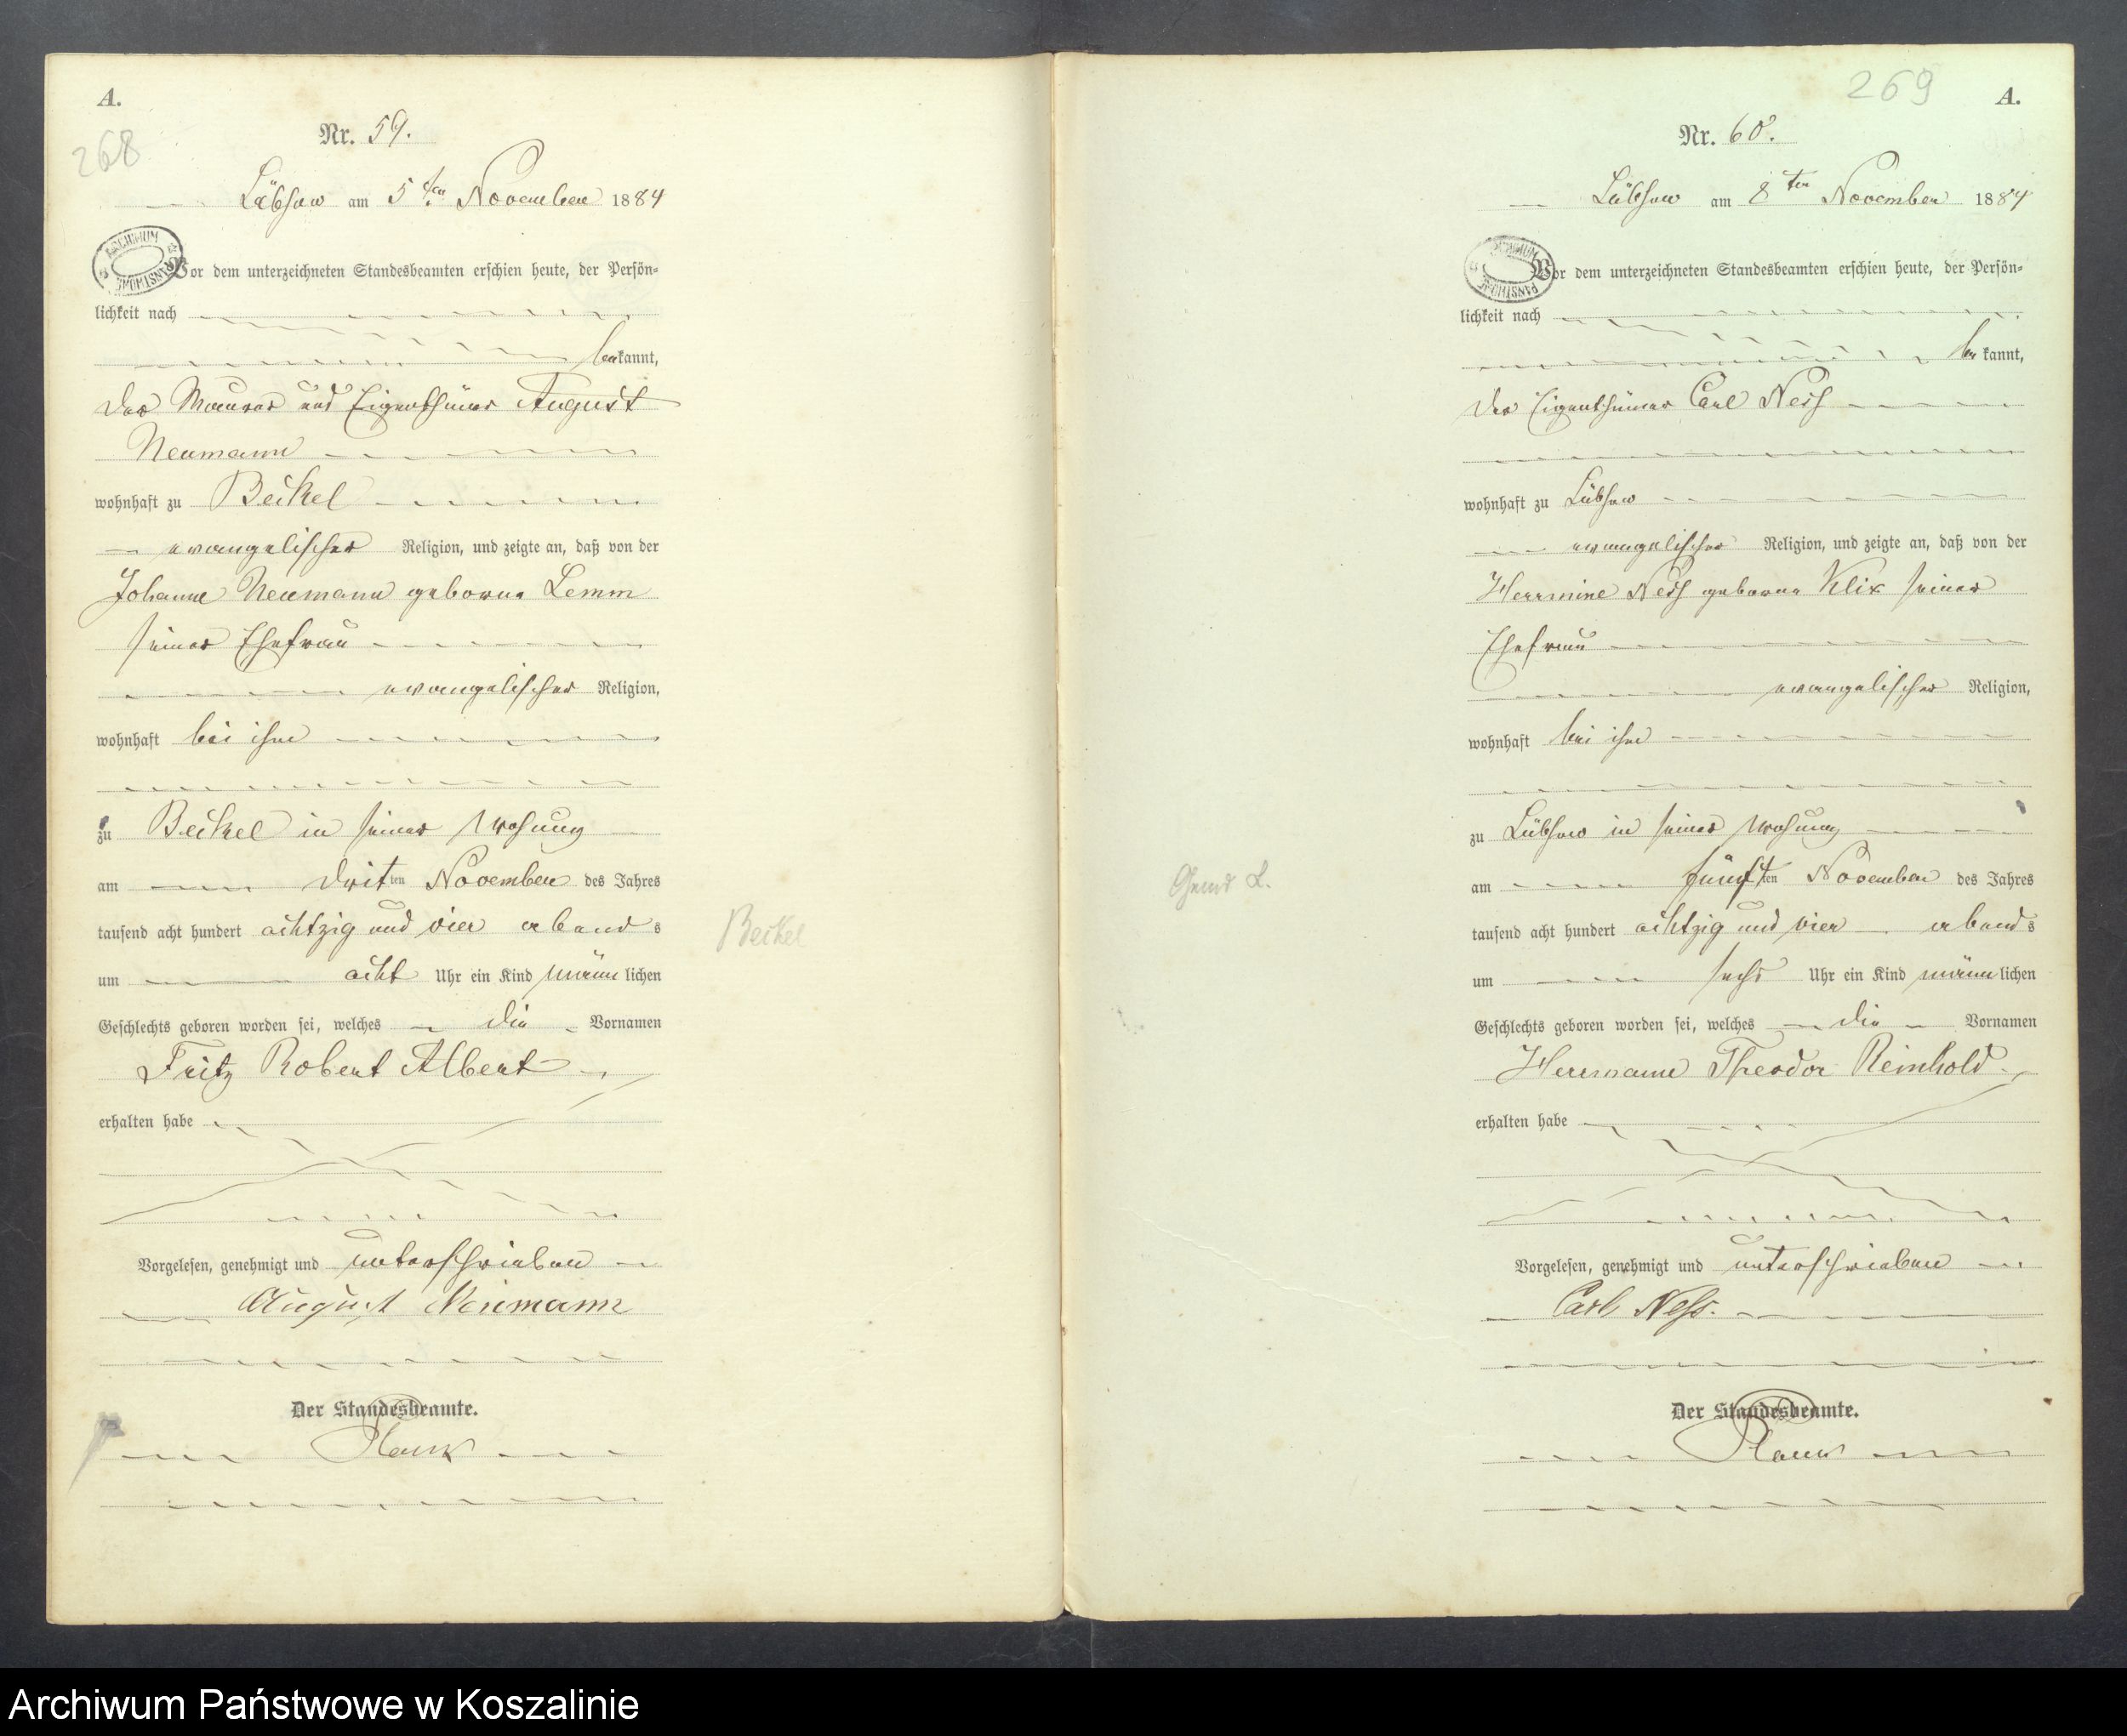 A.
268
Nr. 59.
Lübsow am 5ten November 1884
Vor dem unterzeichneten Standesbeamten erschien heute, der Persön-
lichkeit nach
bekannt,
der Maurer und Eigenthümer August
Neumann
wohnhaft zu Beikel
evangelischer Religion, und zeigte an, daß von der
Johanne Neumann geborne Lemm
seiner Ehefrau
evangelischer Religion,
wohnhaft bei ihm
zu Beikel in seiner Wohnung
am dritten November des Jahres
tausend acht hundert achtzig und vier abends
um acht Uhr ein Kind männlichen
Geschlechts geboren worden sei, welches die Vornamen
Fritz Robert Albert
erhalten habe
Vorgelesen, genehmigt und unterschrieben
August Neumann
Der Standesbeamte.
Beikel
269
A.
Nr. 60.
Lübsow am 8ten November 1884
Vor dem unterzeichneten Standesbeamten erschien heute, der Persön-
lichkeit nach
bekannt,
der Eigenthümer Carl Ness
wohnhaft zu Lübsow
evangelischer Religion, und zeigte an, daß von der
Herrmine Ness geborne Klix seiner
Ehefrau
evangelischer Religion,
wohnhaft bei ihm
zu Lübsow in seiner Wohnung
am fünften November des Jahres
tausend acht hundert achtzig und vier abends
um sechs Uhr ein Kind männlichen
Geschlechts geboren worden sei, welches die Vornamen
Herrmann Theodor Reinhold
erhalten habe
Vorgelesen, genehmigt und unterschrieben
Carl Ness.
Der Standesbeamte.
Archiwum Państwowe w Koszalinie